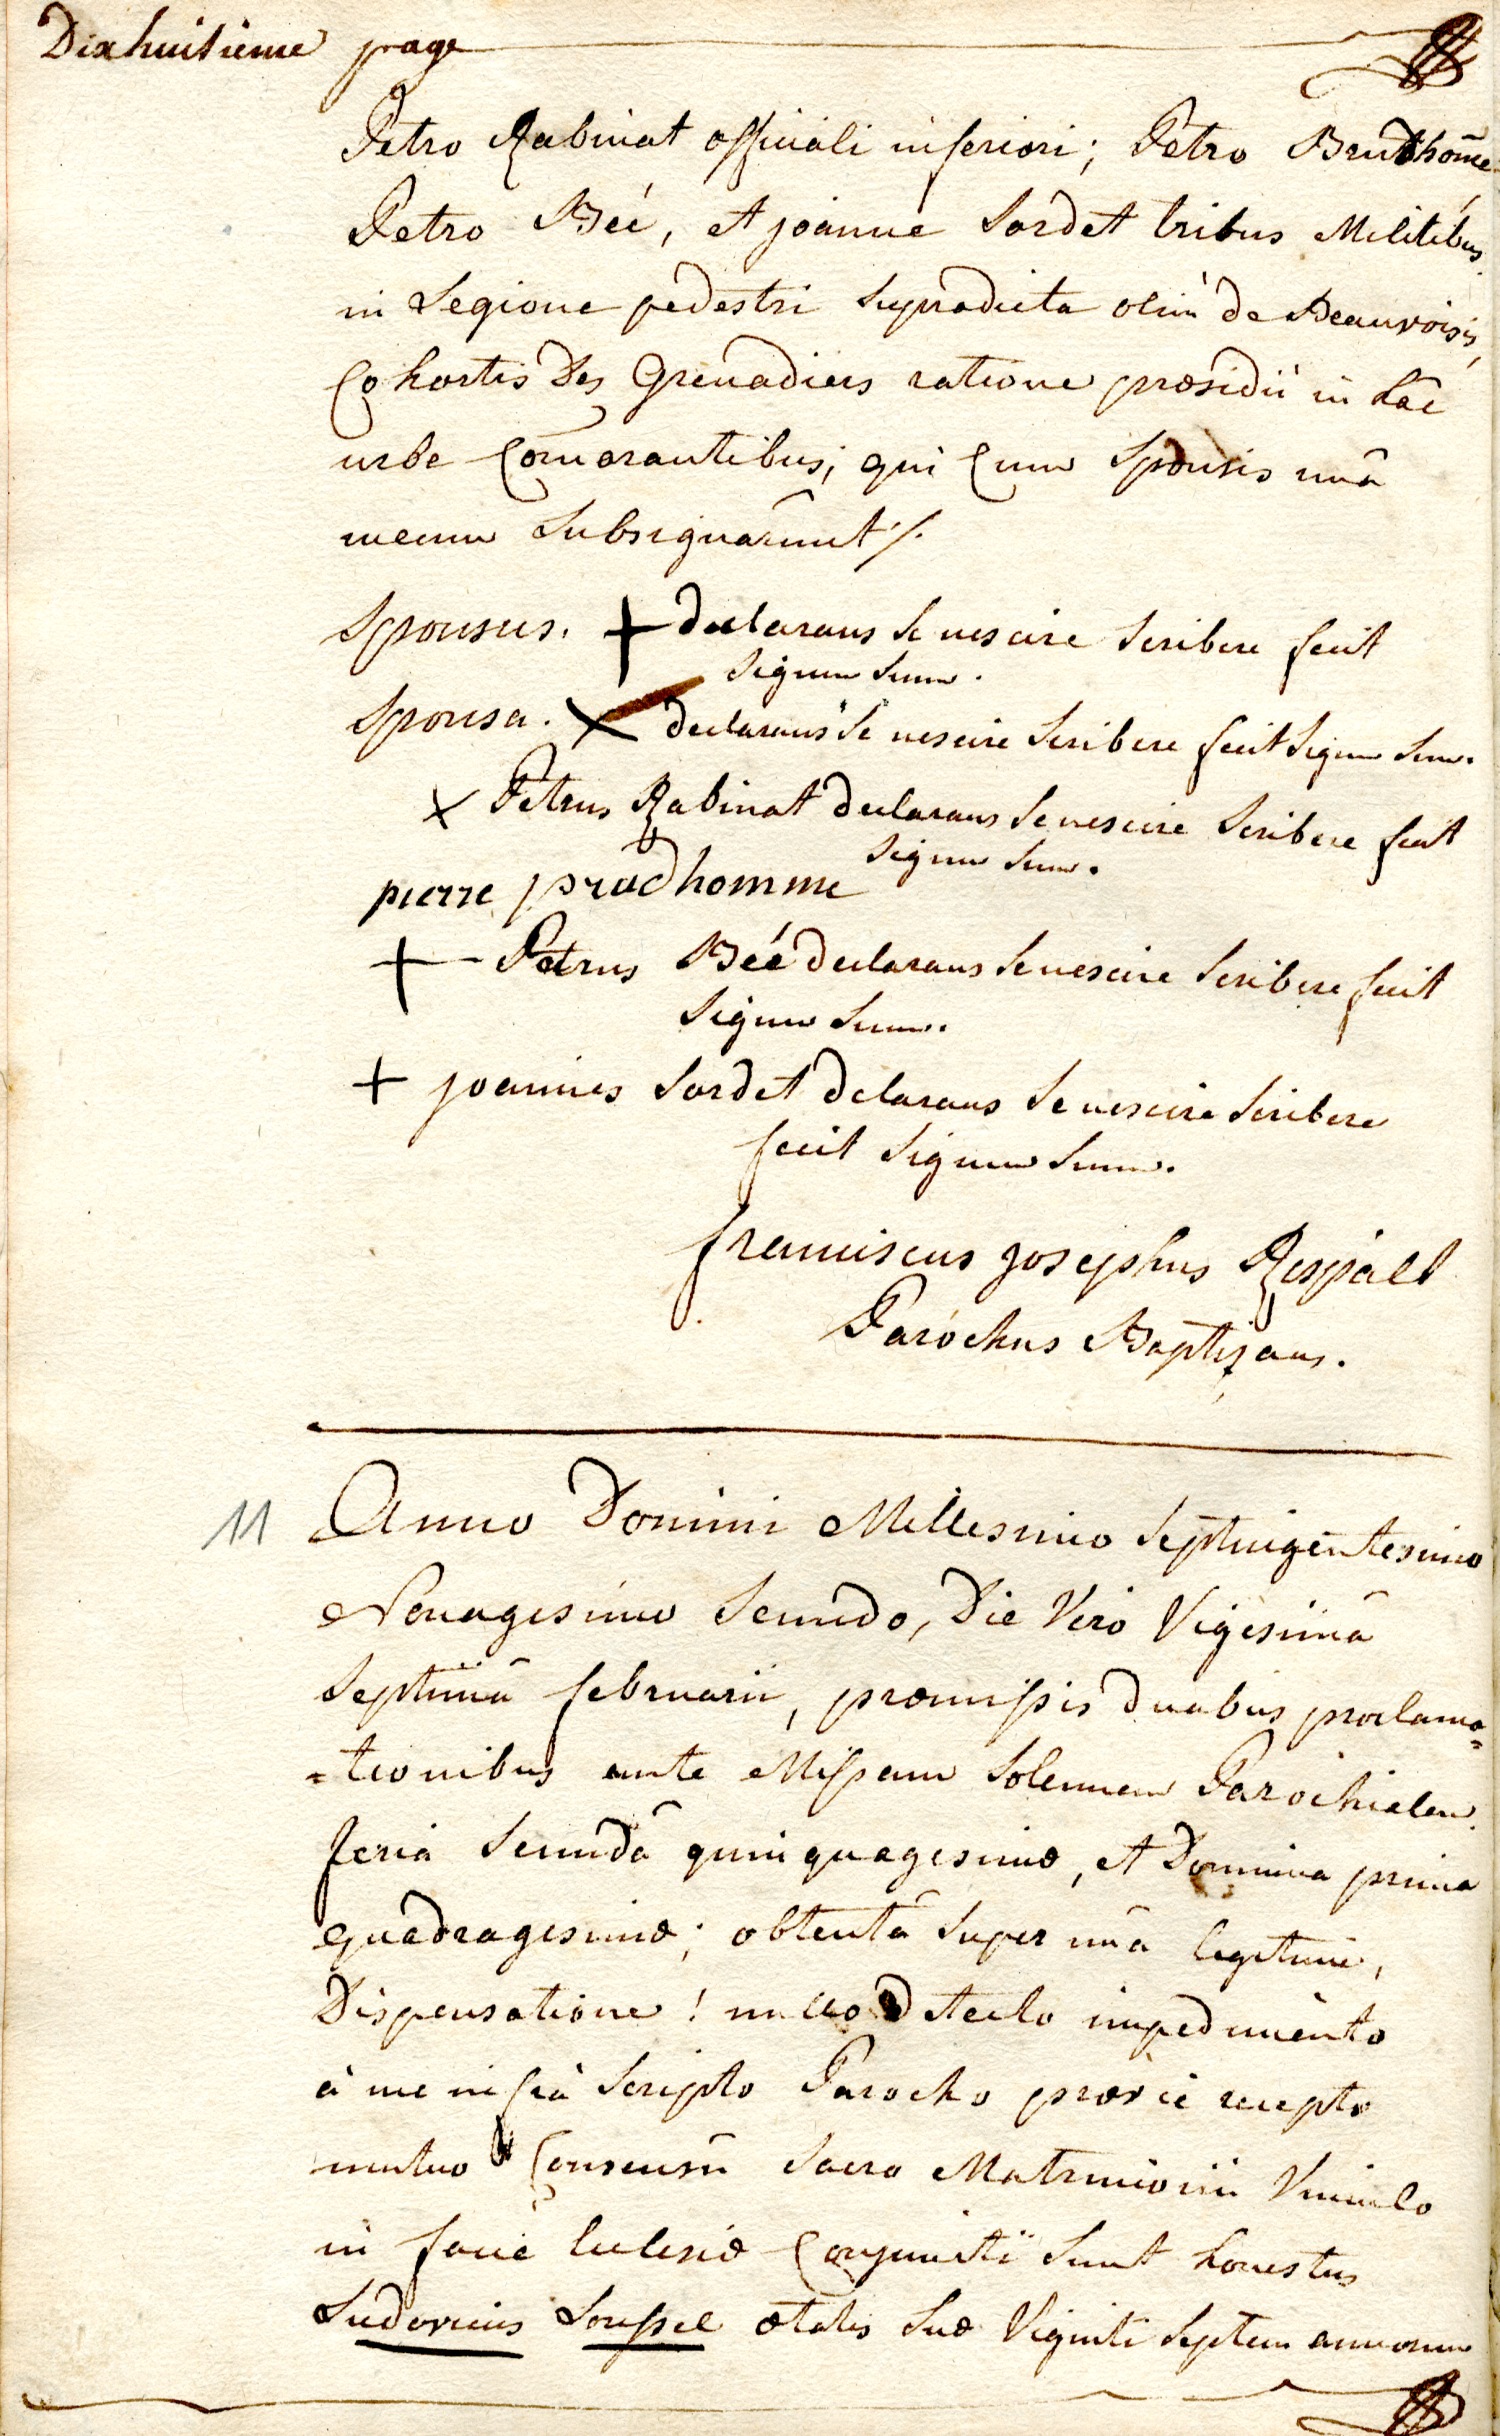 Dixhuitième page
Petro Rabinat officiali inferiori; Petro Brudhom̃e
Petro Beé, et joanne Sordet tribus Militibus
in Legione pedestri supradicta olim de Beauvoisis,
Cohortis des Grenadiers ratione præsidii in hâc
urbe Com̃orantibus; qui Cum Sponsis unâ
mecum Subsignarunt /.
Sponsus. + declarans se nescire scribere fecit
signum suum.
Sponsa. x declarans se nescire scribere fecit signum suum.
x Petrus Rabinat declarans se nescire scribere fecit
signum suum.
pierre prudhomme
+ Petrus Beé declarans se nescire scribere fecit
signum suum.
+ joannes Sordet delarans se nescire scribere
fecit signum suum.
franciscus josephus Respált
Parochus Baptizans.
11 Anno Domini Millesimo Septuigentesimo
Nonagesimo Secundo, Die Vero Vigesimâ
Septimâ februarii, præmissis duabus proclama=
=tionibus ante Missam Solemnem Parochialem
feria Secundâ quinquagesimæ, et Dominica prima
quadragesimæ; obtentâ super unâ legitimè,
Dispensatione! nullo detecto impedimento
à me infrà scripto Parocho prævie recepto
mutuo Consensu Sacro Matrimonii Vinculo
in facie Ecclesiæ Conjuncti sunt honestus
Ludovicus Loussel ætatis suæ Viginti septem annorum